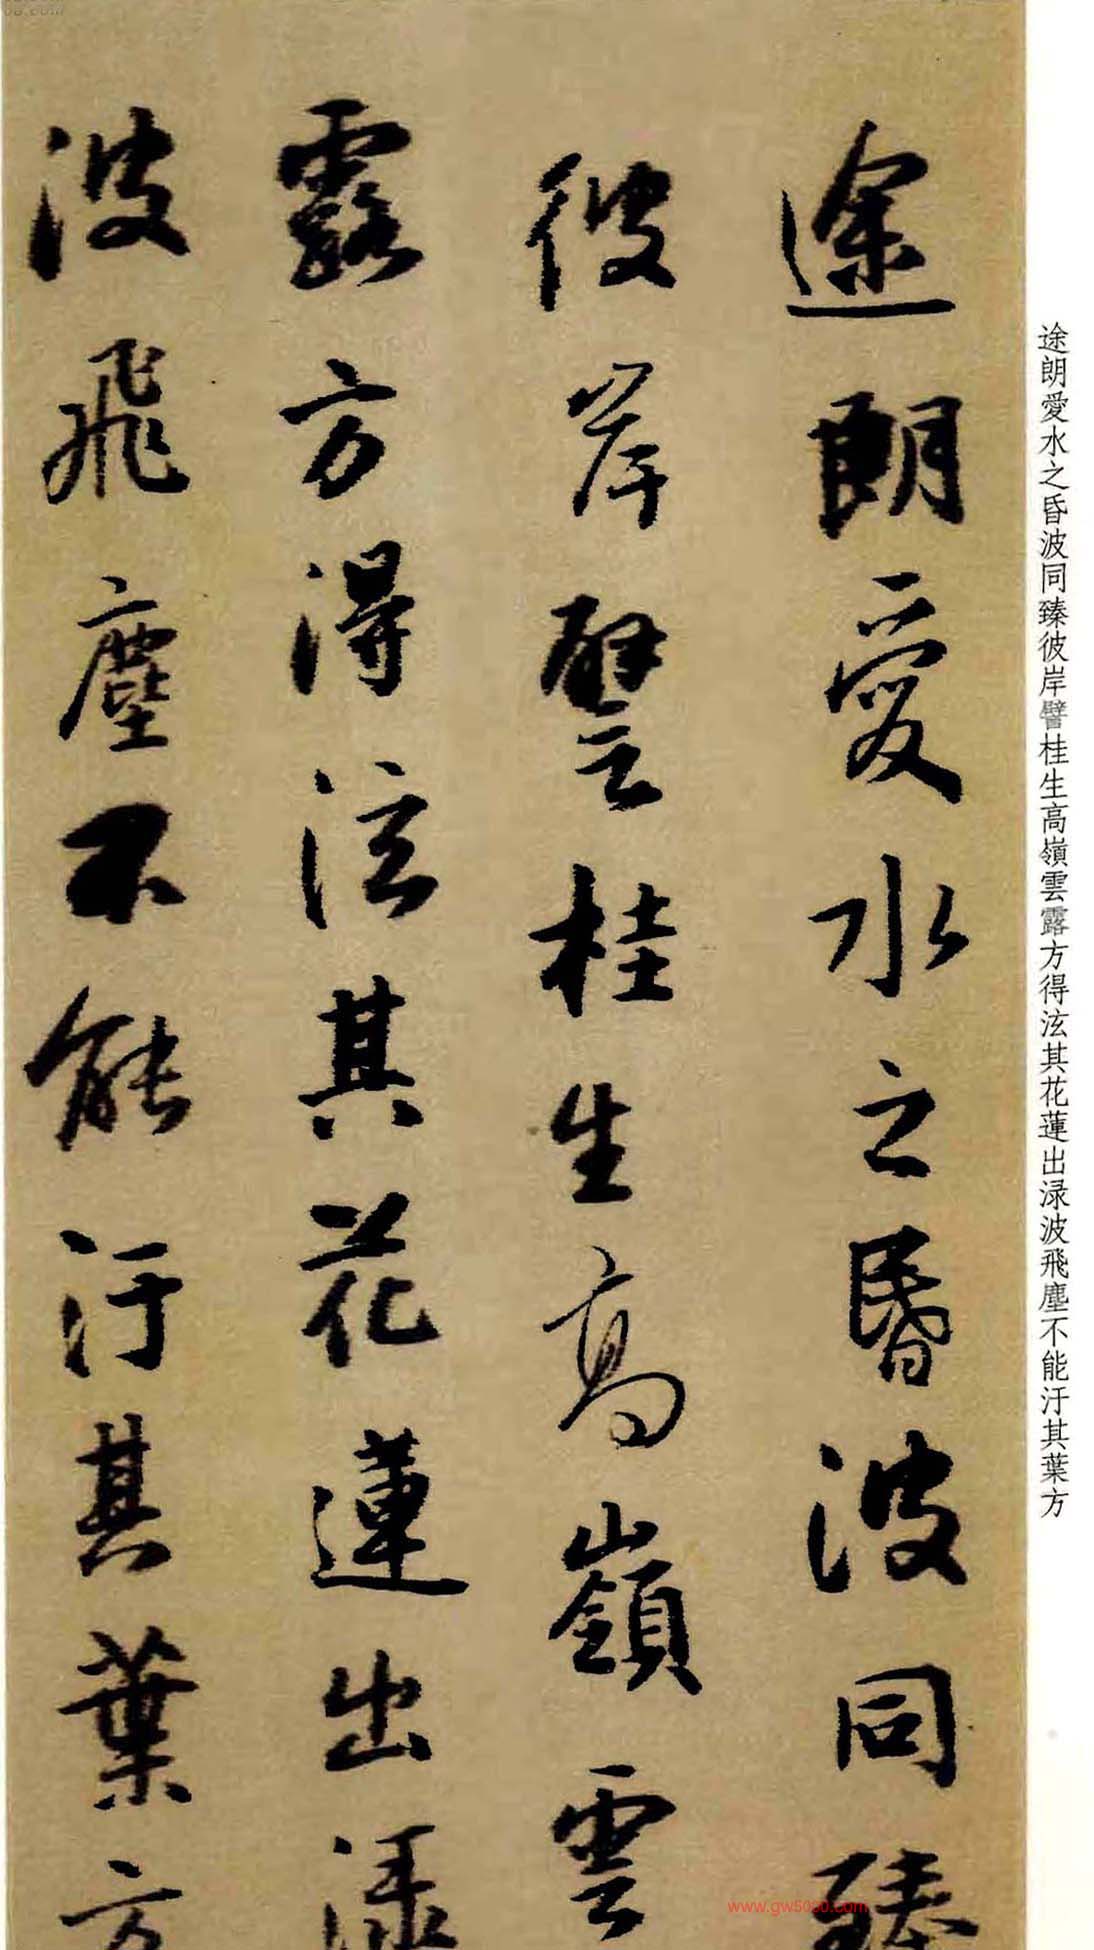 途朗愛水之昏波同臻
彼岸譬桂生高嶺雲
露方得泫其花蓮出淥
波飛塵不能汙其葉方
途朗愛水之昏波同臻彼岸譬桂生高嶺雲露方得泫其花蓮出淥波飛塵不能汙其葉方
www.gw5080.com